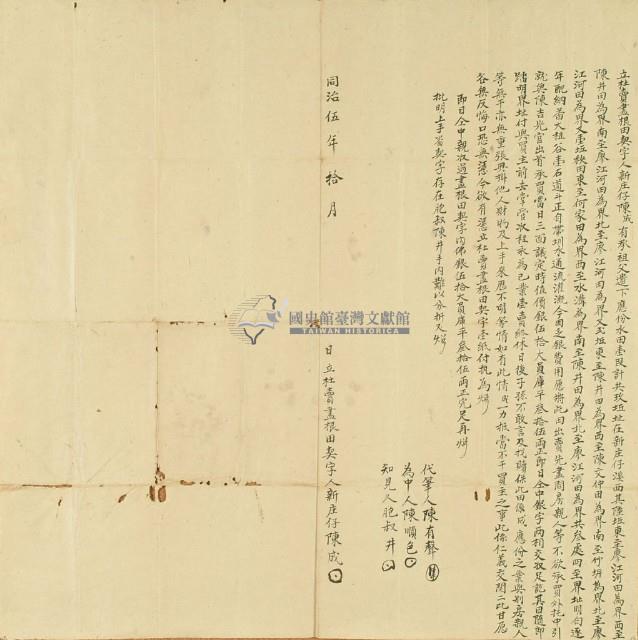 立杜賣盡根田契字人新庄仔陳成有承祖父遺下應份水田壹段計共玖坵址在新庄仔溪西其陸坵東至廖江河田為界西至
陳井田為界南至廖江河田為界北至廖江河田為界又弍坵東至陳井田為界西至陳文仲田為界南至竹塒為界北至廖
江河田為界又壹坵秧田東至何家田為界西至水溝為界南至陳井田為界北至廖江河田為界共叁處四至界址明白逐
年配納番大租谷壹石道斗正自帶圳水通流灌溉今因乏銀費用願將此田出賣先盡問房親人等不欲承買外托中引
就與陳吉光官出首承買當日三面議定時值價銀伍拾大員庫平叁拾伍兩正即日仝中銀字兩相交收足訖其田隨即
踏明界址付與買主前去掌管收租永為己業壹賣終休日後子孫不敢言及找贖保此田係成應份之業與別房親人
等無干亦無重張典掛他人財物及上手來歷不明等情如有此情成一力抵當不干買主之事此係仁義交關二比甘愿
各無反悔口恐無憑今欲有憑立杜賣盡根田契字壹紙付執為炤
即日仝中親收過盡根田契字內佛銀伍拾大員庫平叁拾伍兩正完足再炤
批明上手舊契字存在胞叔陳井手內難以分拆又炤
代筆人陳有聲
為中人陳順色
知見人胞叔井
同治伍年拾月
日立杜賣盡根田契字人新庄仔陳成
國史館臺灣文獻館
TAIWAN HISTORICA